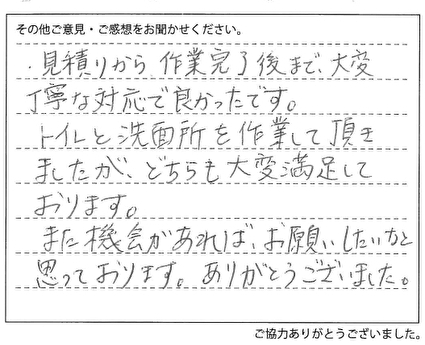 その他ご意見・ご感想をお聞かせください。
・見積りから作業完了後まで、大変
丁寧な対応で良かったです。
トイレと洗面所を作業して頂き
ましたが、どちらも大変満足して
おります。
また機会があれば、お願いしたいなと
思っております。ありがとうございました。
ご協力ありがとうございました。